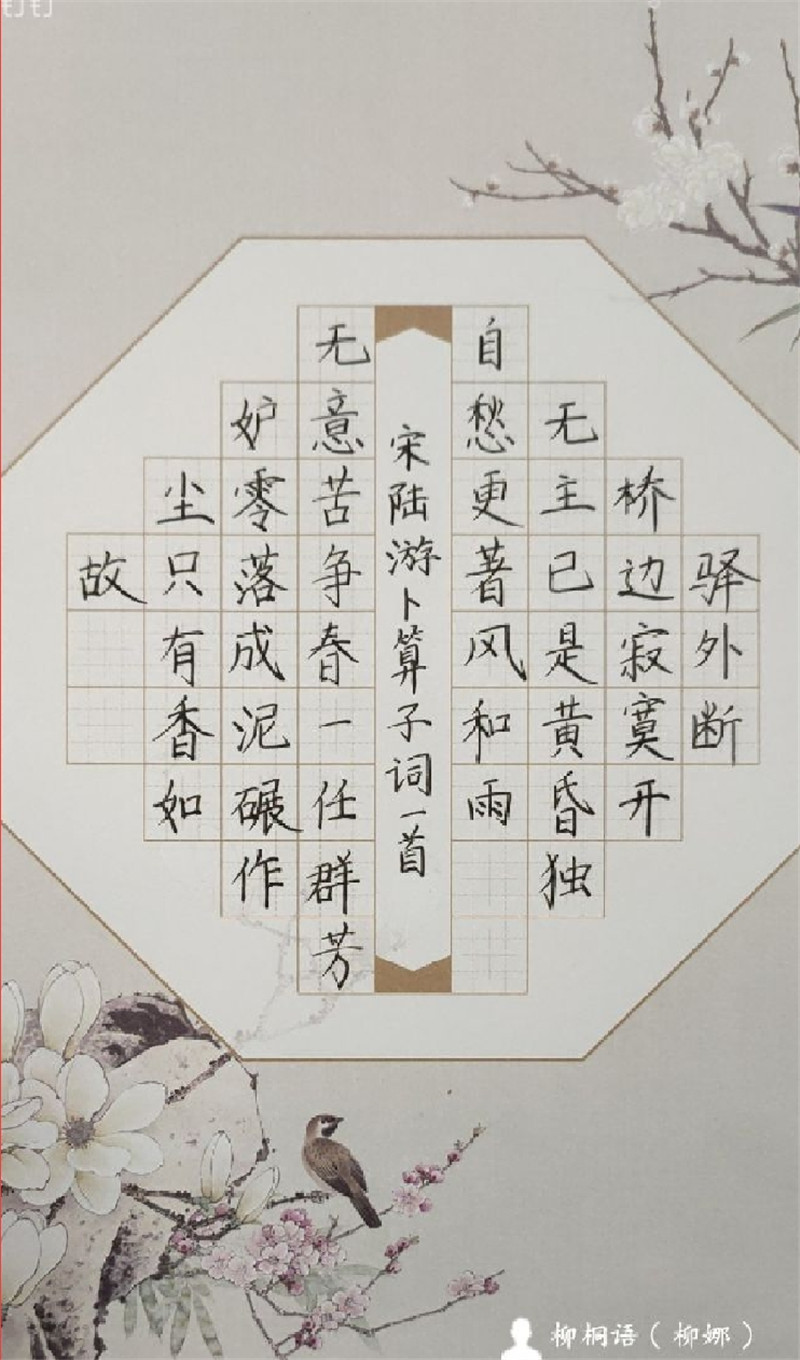 钉钉
驿外断
桥边寂寞开
无主已是黄昏独
自愁更著风和雨
宋陆游卜算子词一首
无意苦争春一任群芳
妒零落成泥碾作
尘只有香如
故
柳桐语（柳娜）